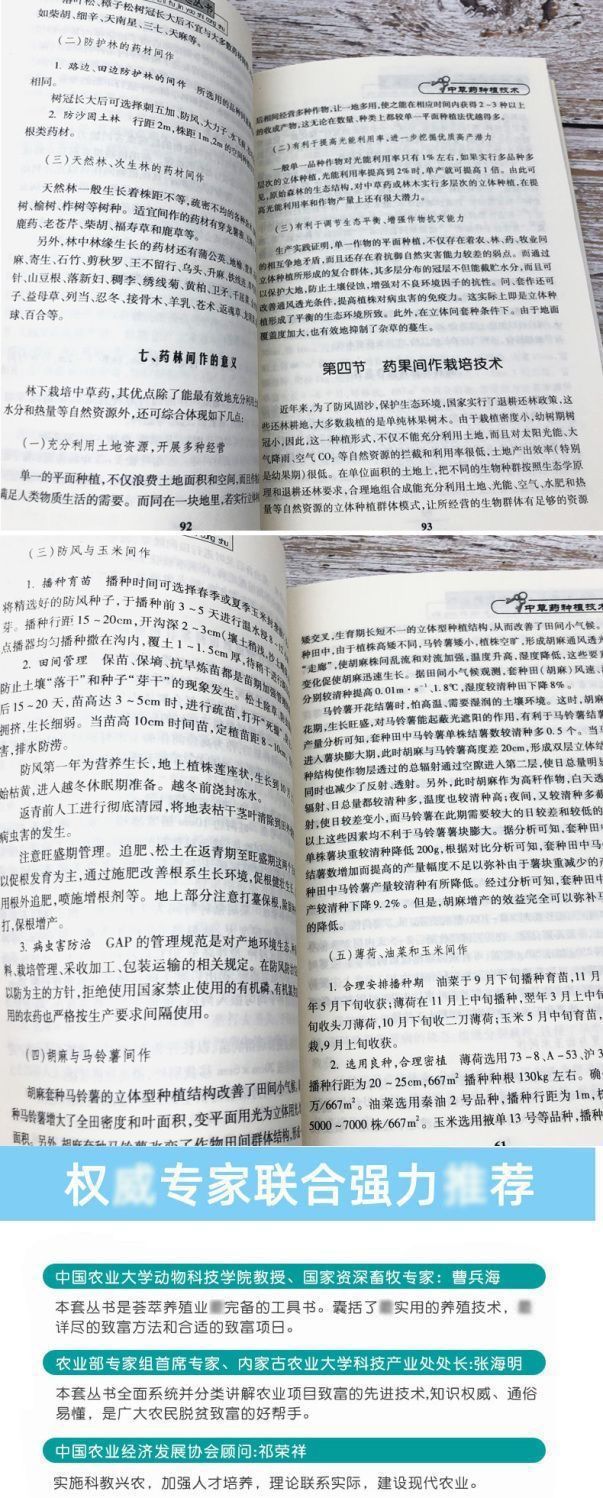 落叶松、樟子松树冠长大后不宜与大多数药材
如柴胡、细辛、天南星、三七、天麻等。
(二)防护林的药材间作
1. 路边、田边防护林的间作 所选用的品种
相同。
树冠长大后可选择刺五加、防风、大力子、
2. 防沙固土林 行距2m,株距1m,2m的空间
根类药材。
(三)天然林、次生林的药材间作
天然林一般生长着株距不等,疏密不均的各种
树、榆树、柞树等树种。适宜间作的药材有穿龙薯蓣、
鹿药、老苍芹、柴胡、福寿草和鹿草等。
另外,林中林缘生长的药材还有蒲公英、地榆、
麻、寄生、石竹、剪秋罗、王不留行、乌头、升麻、铁线莲、
针、山豆根、落新妇、稠李、绣线菊、黄柏、卫矛、千屈菜、
子、益母草、列当、忍冬、接骨木、羊乳、苍术、返魂草、
球、百合等。
七、药林间作的意义
林下栽培中草药,其优点除了能最有效地充分利用
水分和热量等自然资源外,还可综合体现如下几点:
(一)充分利用土地资源,开展多种经营
单一的平面种植,不仅浪费土地面积和空间,而且
满足人类物质生活的需要。而同在一块地里,若实行立体
92
中草药种植技术
后相间经营多种作物,让一地多用,使之能在相应时间内获得2~3种以上
的收成产物,这无论在数量、种类上都较单一平面种植法优越得多。
(二)有利于提高光能利用率,进一步挖掘优质高产潜力
一般单一品种作物对光能利用率只有1%左右,如果实行多品种多
层次的立体种植,光能利用率提高到2%时,单产就可提高1倍。由此可
见,原始森林的生态结构,对中草药或林木实行多层次的立体种植,在提
高光能利用率和作物产量上还有很大潜力。
(三)有利于调节生态平衡,增强作物抗灾能力
生产实践证明,单一作物的平面种植,不仅存在着农、林、药、牧业间
的相互争地矛盾,而且还存在着抗御自然灾害能力较差的弱点。而通过
立体种植所形成的复合群体,其多层分布的冠层不但能截贮水分,而且可
以保护大地,防止土壤侵蚀,增强对不良环境因子的抗性。问、套作还可
改善通风透光条件,提高植株对病虫害的免疫力。这实际上即是立体种
植形成了平衡的生态环境所致。此外,在立体间套种条件下。由于地面
覆盖度加大,也有效地抑制了杂草的蔓生。
第四节 药果间作栽培技术
近年来,为了防风固沙,保护生态环境,国家实行了退耕还林政策,这
些还林耕地,大多数栽植的是单纯林果树木。由于栽植密度小,幼树期树
冠小,因此,这一种植形式,不仅不能充分利用土地,而且对太阳光能、大
气降雨、空气CO₂等自然资源的拦截和利用率很低,土地产出效率(特别
是幼果期)很低。在单位面积的土地上,把不同的生物种群按照生态学原
理和退耕还林要求,合理地组合成能充分利用土地、光能、空气、水肥和热
量等自然资源的立体种植群体模式,让所经营的生物群体有足够的资源
93
(三)防风与玉米间作
1. 播种育苗 播种时间可选择春季或夏季玉米
将精选好的防风种子,于播种前3~5天进行温水浸
芽。播种行距15~20cm,开沟深2~3cm(壤土稍浅,沙土
点播器均匀播种撒在沟内,覆土1~1.5cm厚,待稍干
2. 田间管理 保苗、保墒、抗旱炼苗都是苗期加强
防止土壤“落干”和种子“芽干”的现象发生。松土除草
后15~20天,苗高达3~5cm时,进行疏苗,打开“死撮”
拥挤,生长细弱。当苗高10cm时间苗,定植苗距8~10cm
害,排水防涝。
防风第一年为营养生长,地上植株莲座状,生长到10月
始枯黄,进入越冬休眠期准备。越冬前浇封冻水。
返青前人工进行彻底清园,将地表枯干茎叶清除到田外
病虫害的发生。
注意旺盛期管理。追肥、松土在返青期至旺盛期这两个
以促根发育为主,通过施肥改善根系生长环境,促根健壮生
用根外追肥,喷施增根剂等。地上部分注意打薹保根,除
打,保根增产。
3. 病虫害防治 GAP的管理规范是对产地环境生态、
料、栽培管理、采收加工、包装运输的相关规定。在防风防治
以防为主的方针,拒绝使用国家禁止使用的有机磷、有机氯
用的农药也严格按生产要求间隔使用。
(四)胡麻与马铃薯间作
胡麻套种马铃薯的立体型种植结构改善了田间小气候,
种马铃薯增大了全田密度和叶面积,变平面用光为立体用光
面积。另外,胡麻套种马铃薯改变了作物田间群体结构,形
中草药种植技术
矮交叉,生育期长短不一的立体型种植结构,从而改善了田间小气候。
种田中,由于植株高矮不同,马铃薯矮小,植株空旷,形成胡麻通风透光
“走廊”,使胡麻株间乱流和对流加强,温度升高,湿度降低,这些要
变化促使胡麻迅速生长。据田间小气候观测,套种田(胡麻)风速、
分别较清种提高0.01m·s⁻¹、1.8℃,湿度较清种田下降8%。
马铃薯开花结薯时,怕高温、需要湿润的土壤环境。这时,胡麻
花期,生长旺盛,对马铃薯能起蔽光遮阴的作用,有利于马铃薯结
产量分析可知,套种田马铃薯单株结薯数较清种多0.5个。当马
进入薯块膨大期,此时胡麻与马铃薯高度差20cm,形成双层立体结
种结构使作物层透过的总辐射通过空隙进入第二层,使日总量明显
同时也减少了反射、透射。另外,此时胡麻作为高秆作物,白天透
辐射、日总量都较清种多,温度也较清种高;夜间,又较清种多截
射,使日较差变小,而马铃薯在此期需要较大的日较差和较低的
以上这些因素均不利于马铃薯薯块膨大。据分析可知,套种田
单株薯块重较清种降低200g,根据对比分析可知,套种田马铃薯
结薯数增加而提高的产量幅度不足以弥补由于薯块重减少的产
种田中马铃薯产量较清种有所降低。经过分析可知,套种田中
产较清种下降9.2%。但是,胡麻增产的效益完全可以弥补马
的降低。
(五)薄荷、油菜和玉米间作
1. 合理安排播种期 油菜于9月下旬播种育苗,11
年5月下旬收获;薄荷在11月上中旬播种,翌年3月上中
旬收头刀薄荷,10月下旬收二刀薄荷;玉米5月中旬育苗,
栽,9月上旬收获。
2. 选用良种,合理密植 薄荷选用73-8、A-53、沪3
播种行距为20~25cm,667m²播种种根130kg左右。确
万/667m²。油菜选用秦油2号品种,播种行距为1m,株
5000~7000株/667m²。玉米选用掖单13号等品种,播种
61
权威专家联合强力推荐
中国农业大学动物科技学院教授、国家资深畜牧专家:曹兵海
本套丛书是荟萃养殖业完备的工具书。囊括了实用的养殖技术,
详尽的致富方法和合适的致富项目。
农业部专家组首席专家、内蒙古农业大学科技产业处处长:张海明
本套丛书全面系统并分类讲解农业项目致富的先进技术,知识权威、通俗
易懂,是广大农民脱贫致富的好帮手。
中国农业经济发展协会顾问:祁荣祥
实施科教兴农,加强人才培养,理论联系实际,建设现代农业。